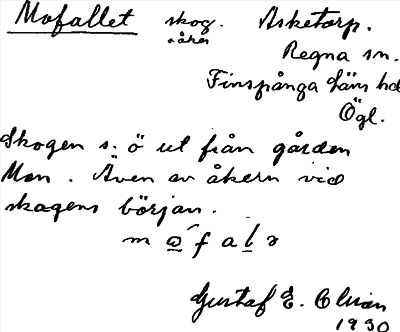 Mofallet skog. Asketorp.
åker
Regna sn.
Finspånga läns hd
Ögl.
Skogen s. ö ut från gården
Mon. Även av åkern vid
skogens början.
Gustaf E.
1930